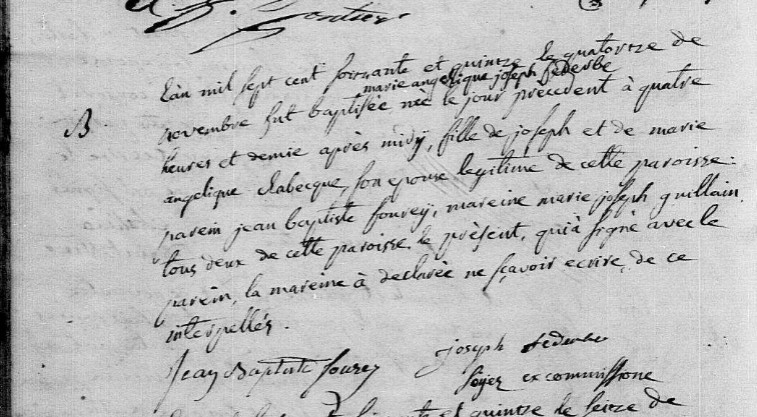 B
Lán mil sept cent soixante et quinze le quatorze de
marie angelique joseph federbe
novembre fut baptisée née le jour precedent à quatre
heures et demie après midÿ, fille de joseph et de marie
angelique Labecque, son epouse legitime de cette paroisse:
parein jean baptiste fourey, mareine marie joseph guillain
tous deux de cette paroisse, le pèrésent, qui à signé avec le
parein, la mareine à declarée ne sçavoir ecrire, de ce
interpellés.
Jean Baptiste fourey joseph federbe
ex commissione
et quinze le seize de